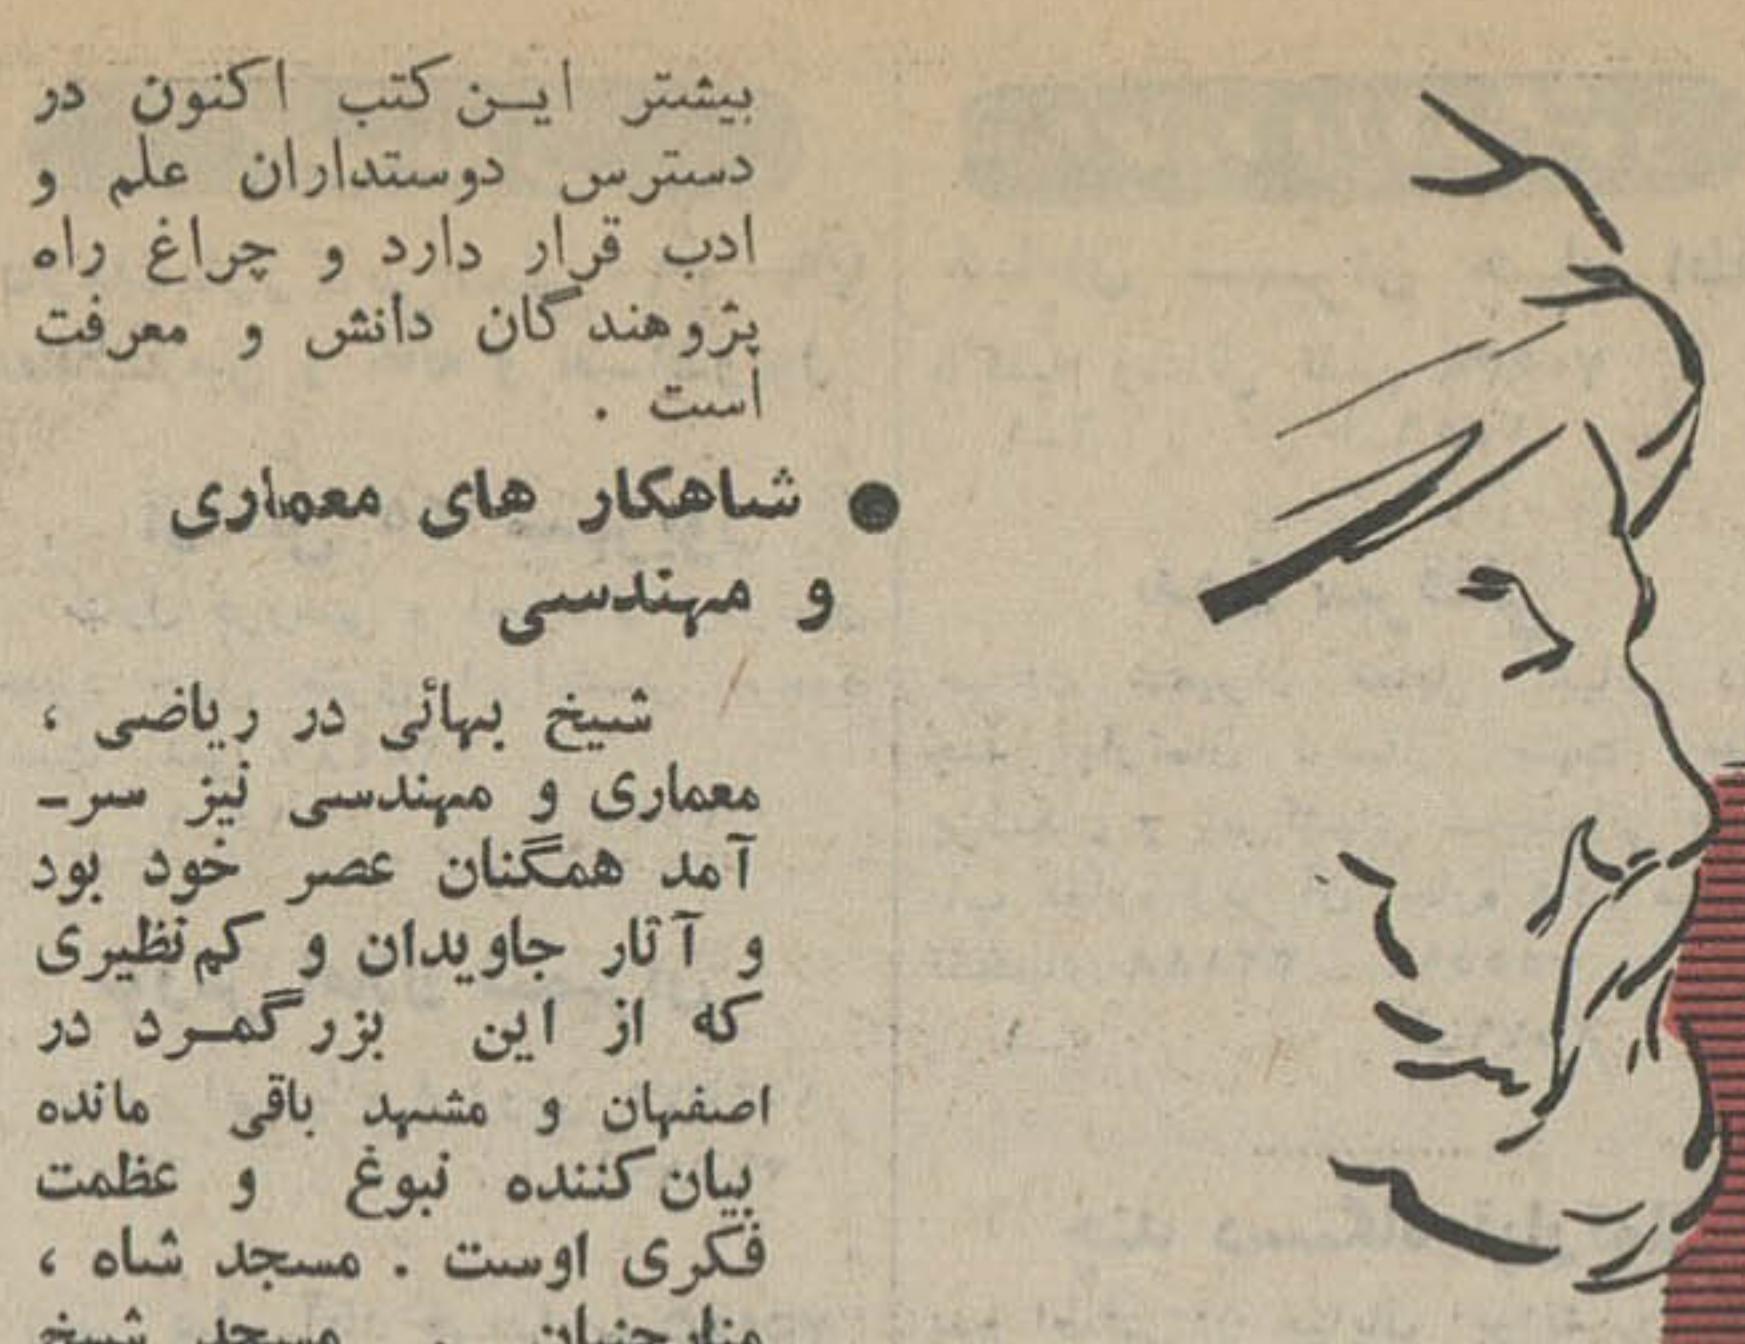 بیشتر ایــن کتب اکنون در
دسترس دوستداران علم و
ادب قرار دارد و چراغ راه
پژوهندگان دانش و معرفت
است .
● شاهکار های معماری
و مهندسی
شیخ بهائی در ریاضی ،
معماری و مهندسی نیز سر-
آمد همگنان عصر خود بود
و آثار جاویدان و کم نظیری
که از این بزرگمــرد در
اصفهان و مشهد باقی مانده
بیان کننده نبوغ و عظمت
فکری اوست . مسجد شاه ،
منارجنبان ، مسجد شیخ